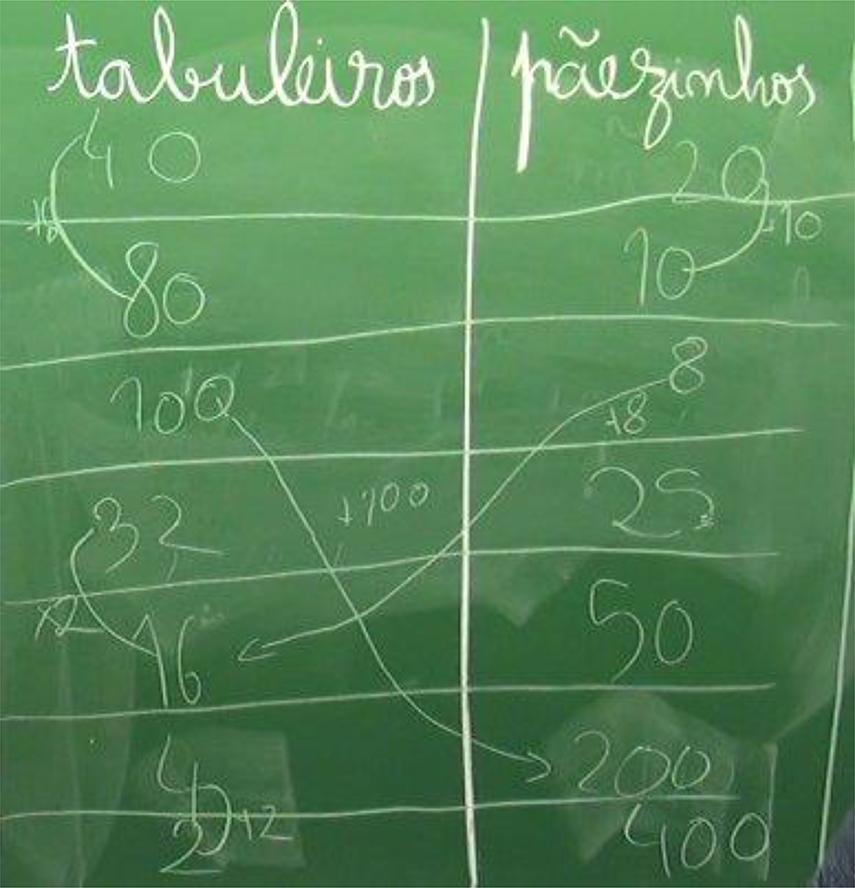 tabuleiros pãezinhos
40 20
-10
80 10
100 8
+8
+100
32 25
×2
16 50
4 200
+2
2 400